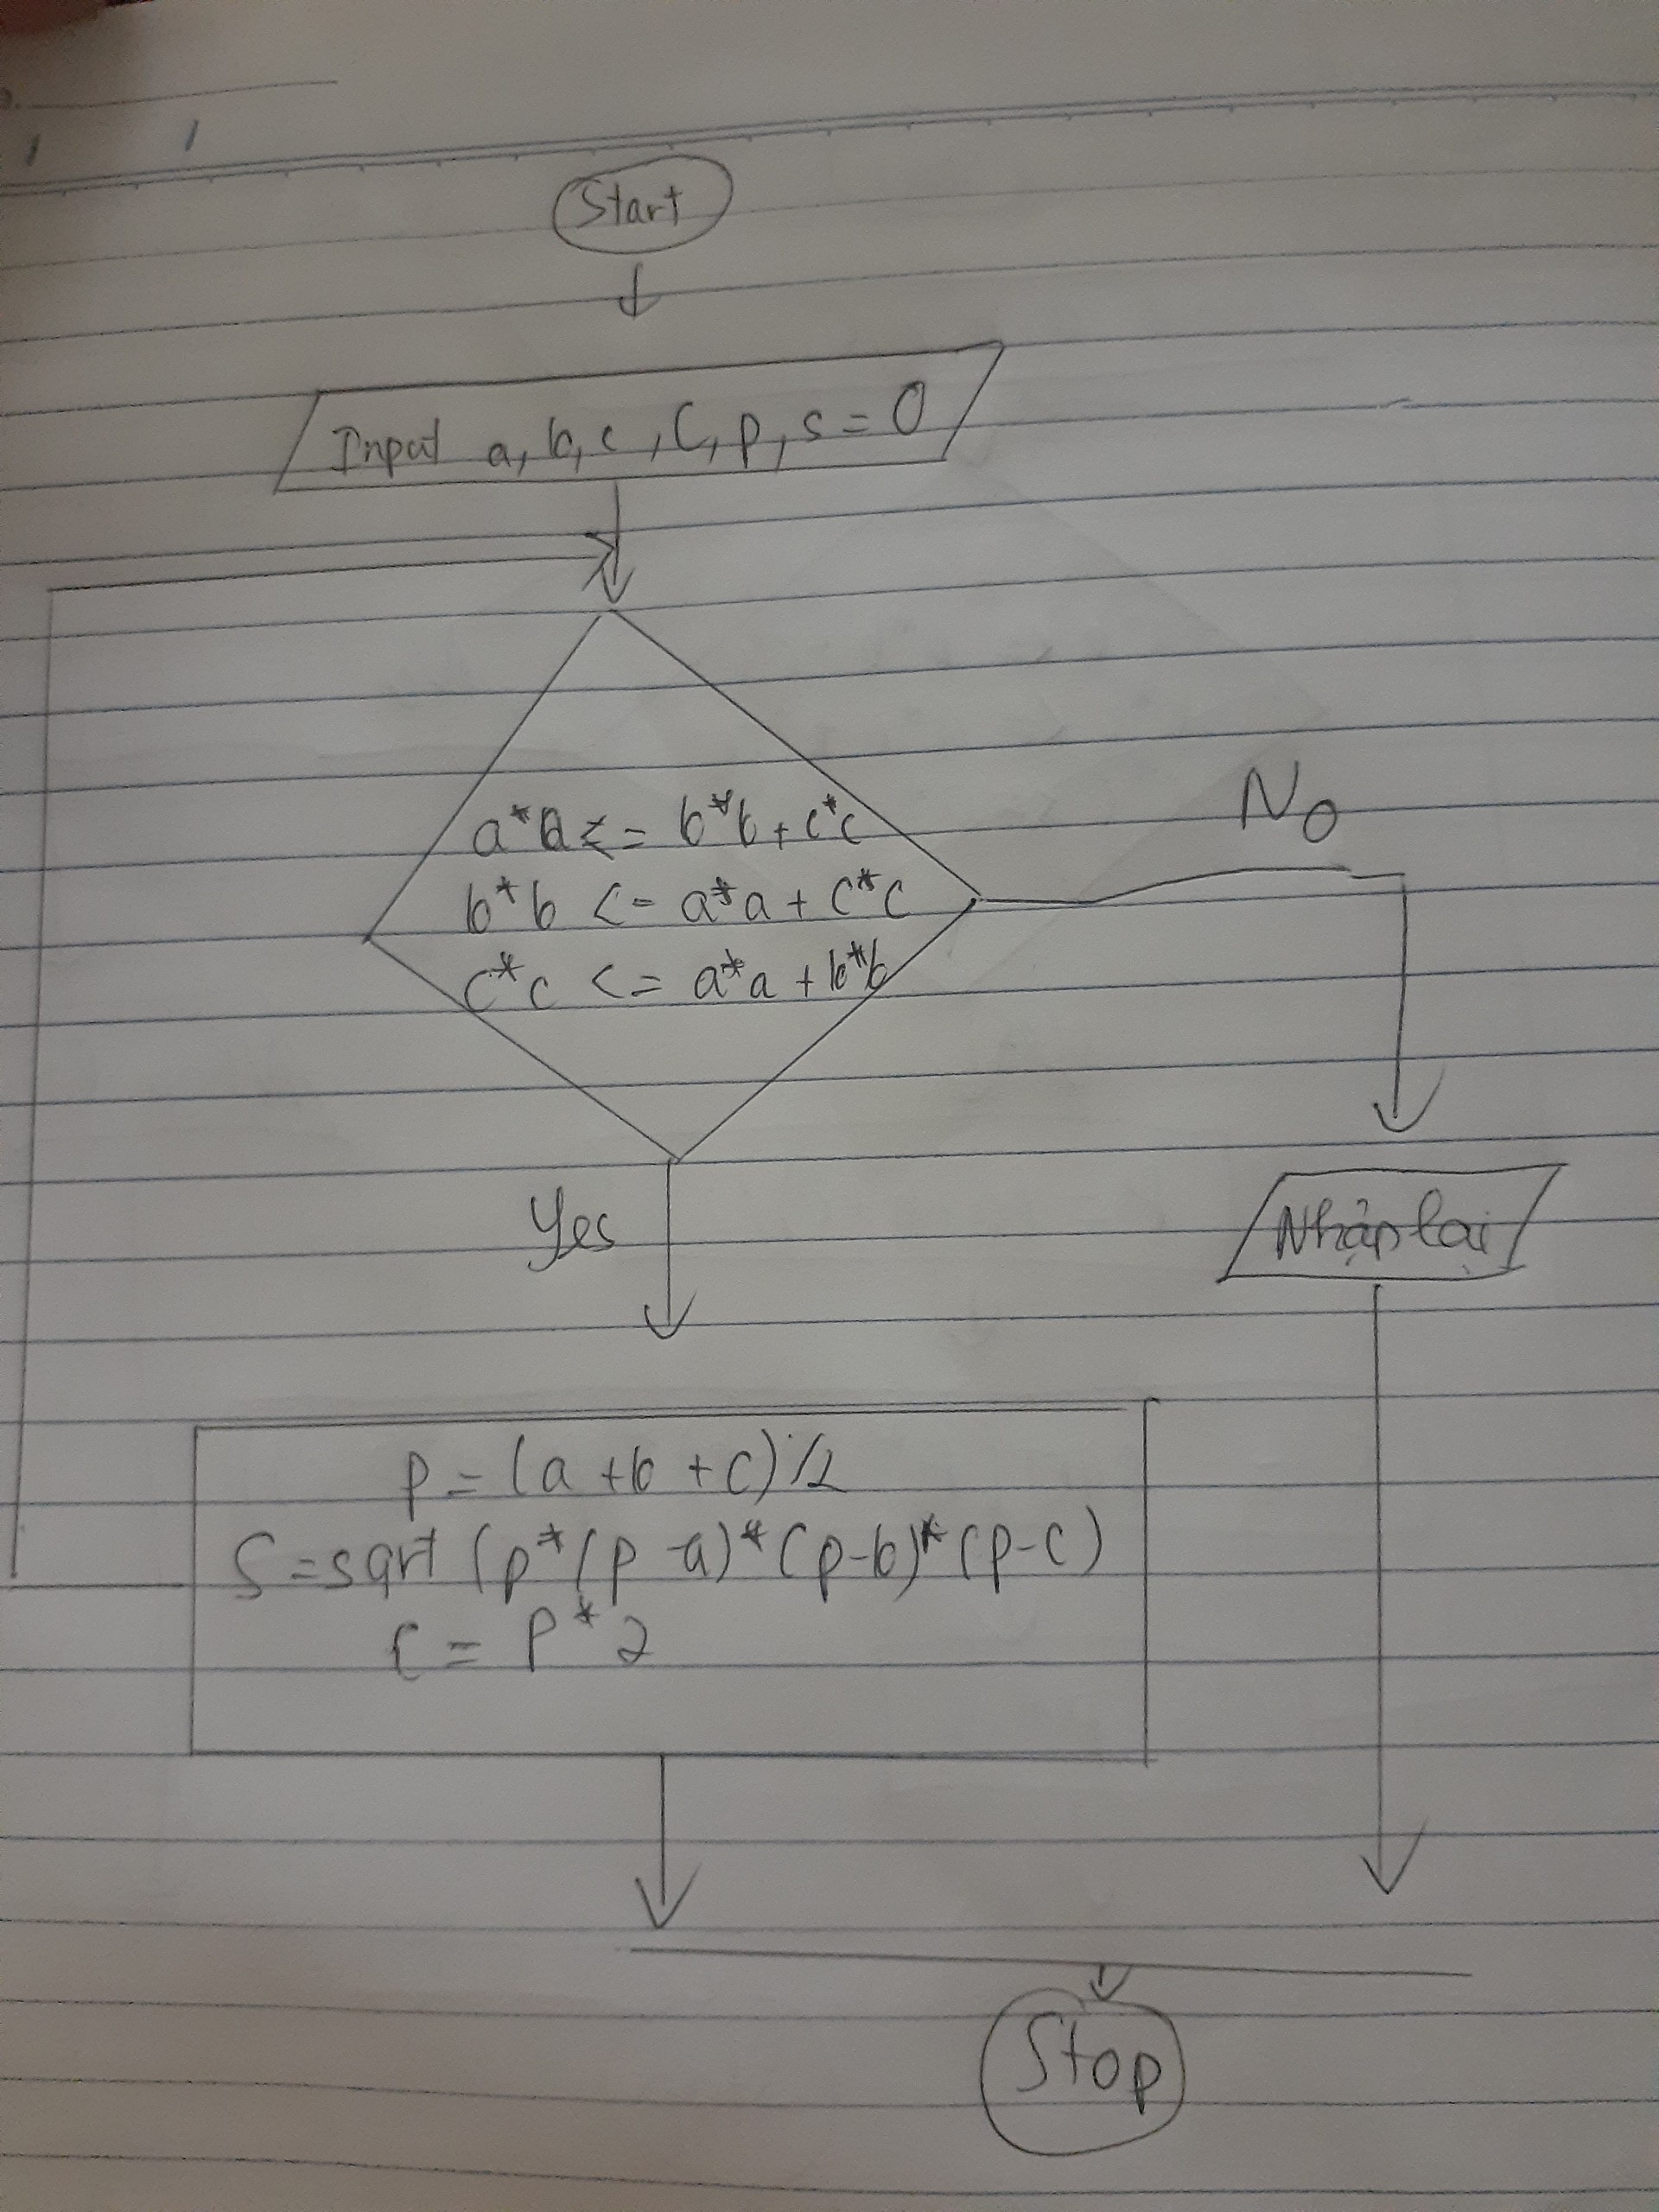 Start
Input a, b, c, C, p, s = 0
a*a <= b*b + c*c
b*b <= a*a + c*c
c*c <= a*a + b*b
No
Yes
Nhập lại
P = (a + b + c)/2
S = sqrt (p*(p-a)*(p-b)*(p-c)
C = P*2
Stop